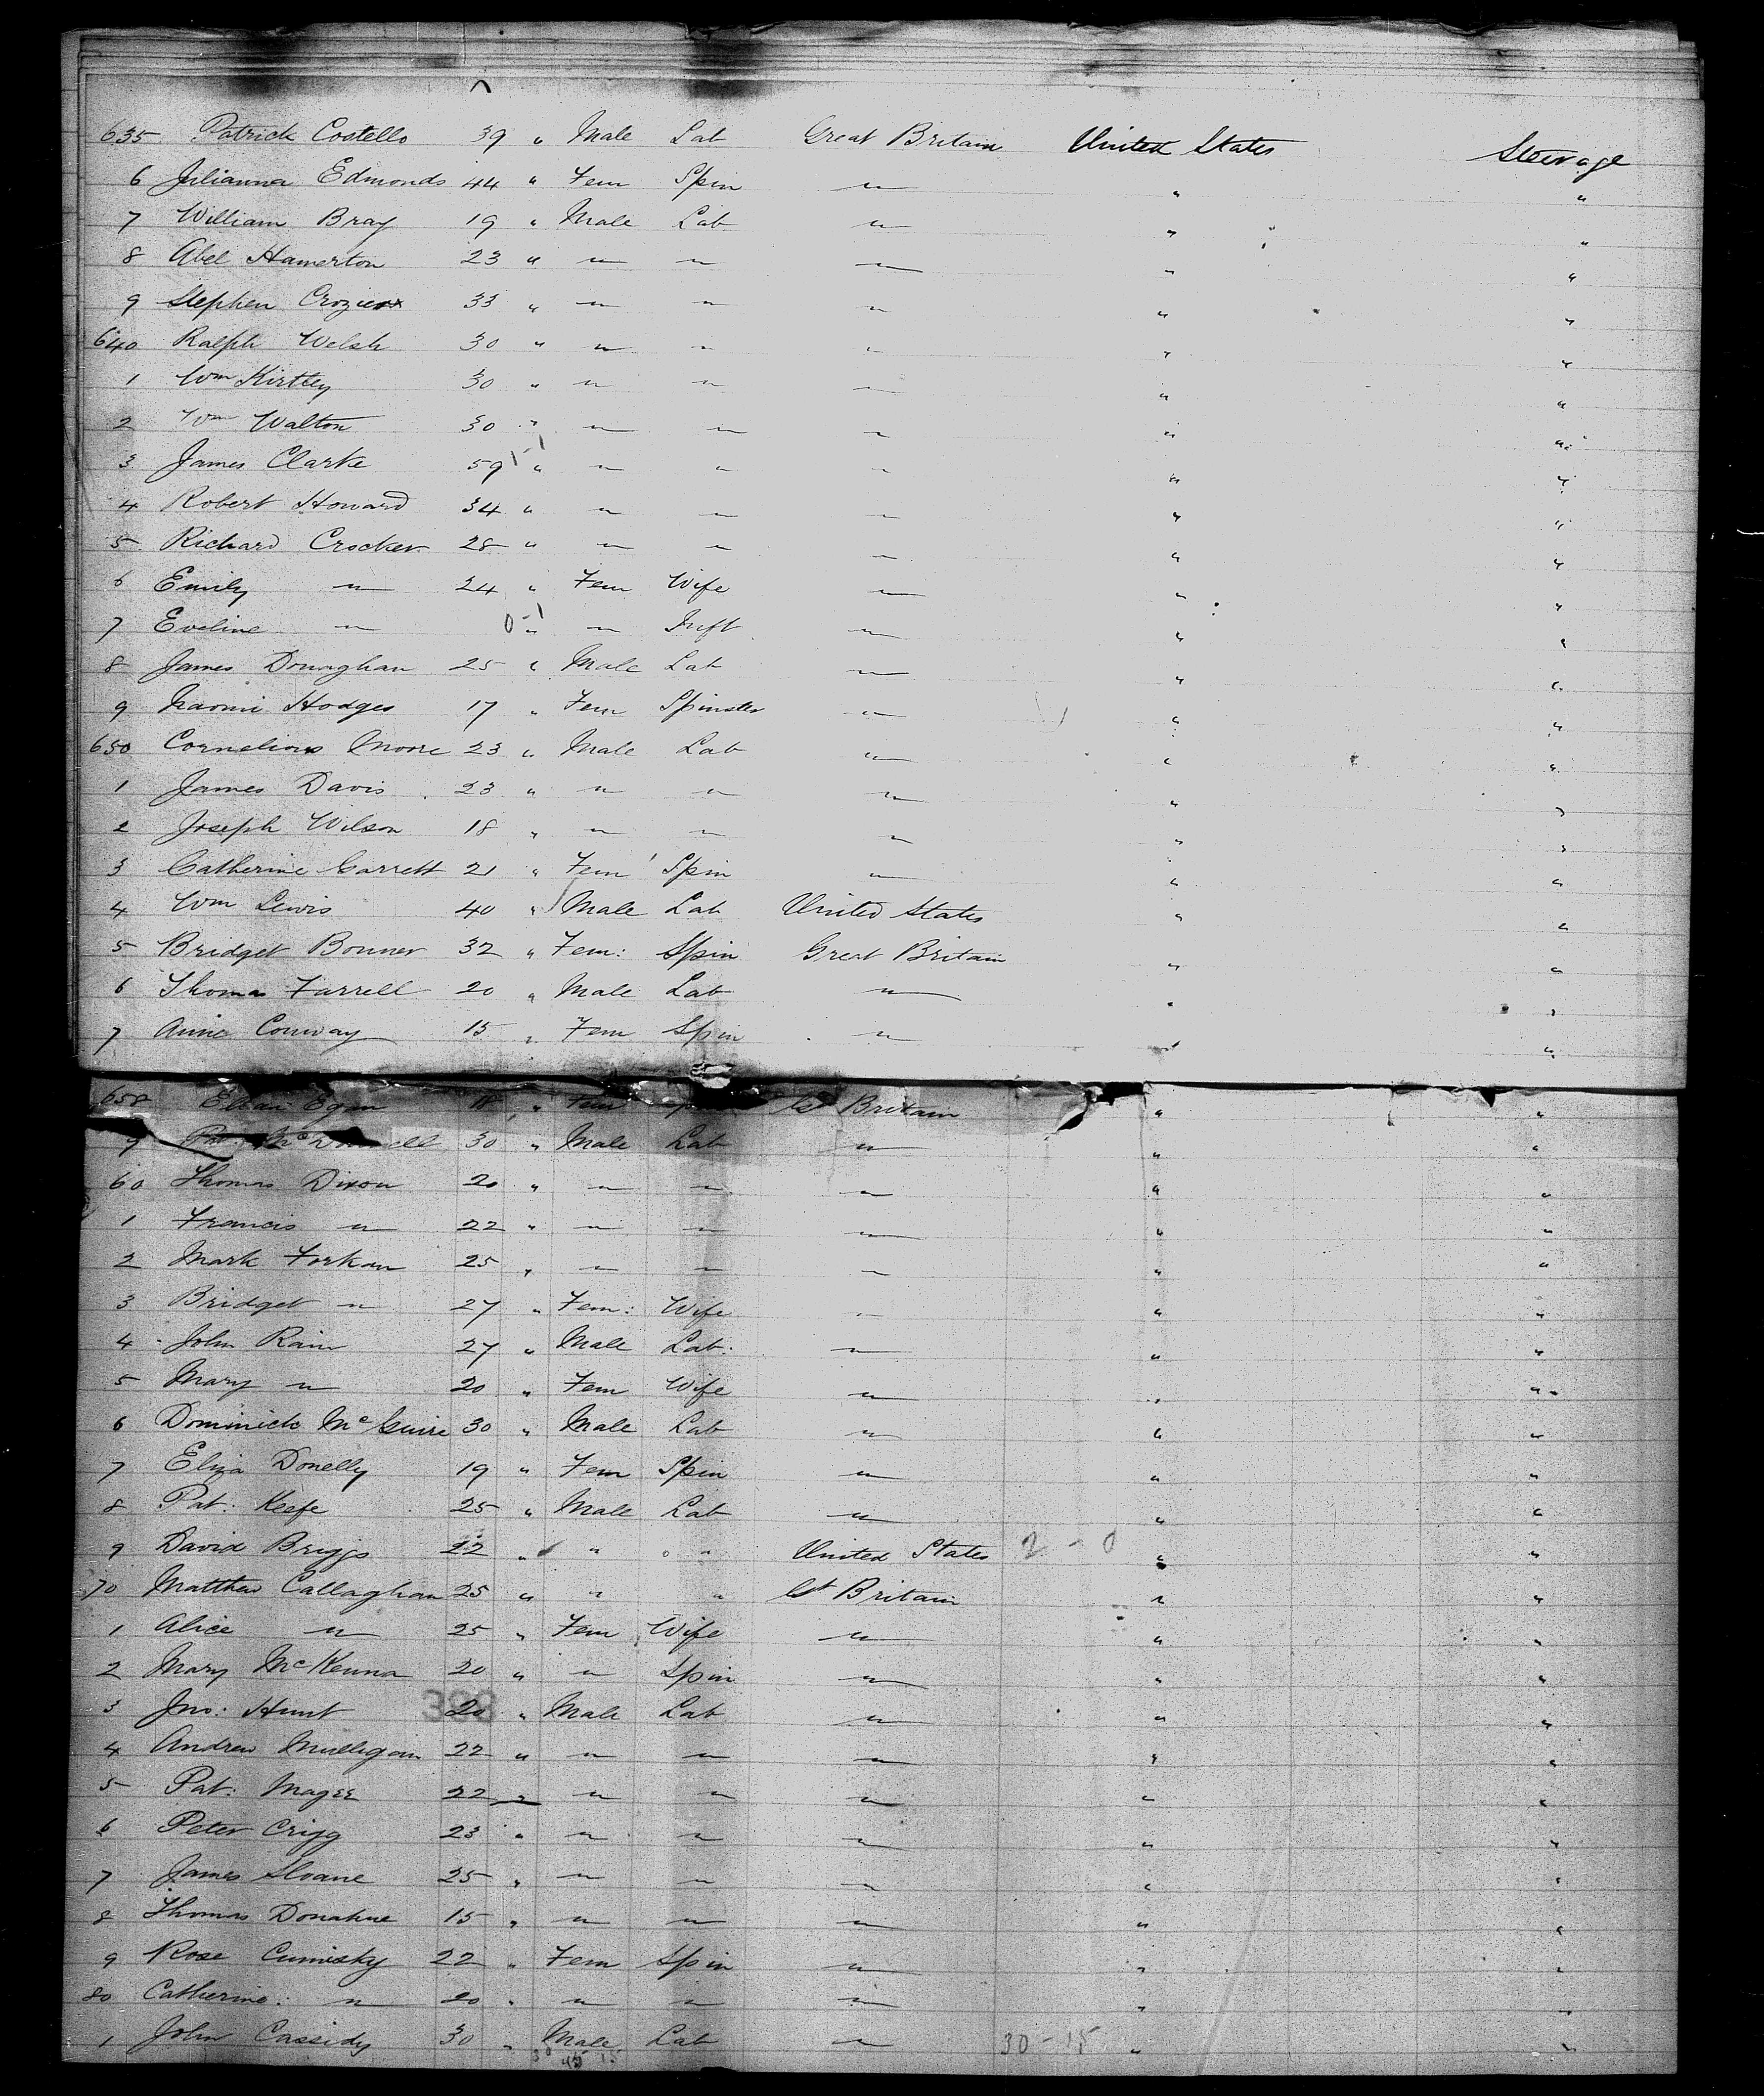 635 Patrick Costello 39 " Male Lab Great Britain United States Steerage
6 Julianna Edmonds 44 " Fem Spin " " "
7 William Bray 19 " Male Lab " " "
8 Abel Hamerton 23 " " " " " "
9 Stephen Crozier 33 " " " " " "
640 Ralph Welsh 30 " " " " " "
1 Wm Kirtley 30 " " " " " "
2 Wm Walton 30 " " " " " "
3 James Clarke 59 1-1 " " " " " "
4 Robert Howard 34 " " " " " "
5 Richard Crocker 28 " " " " " "
6 Emily " 24 " Fem Wife " " "
7 Eveline " 0-1 " " Inft " " "
8 James Donaghan 25 " Male Lab " " "
9 Naomi Hodges 17 " Fem Spinster " " "
650 Cornelious Moore 23 " Male Lab " " "
1 James Davis 23 " " " " " "
2 Joseph Wilson 18 " " " " " "
3 Catherine Garrett 21 " Fem Spin " " "
4 Wm Lewis 40 " Male Lab United States " "
5 Bridget Bonner 32 " Fem: Spin Great Britain " "
6 Thomas Farrell 20 " Male Lab " " "
7 Anne Conway 15 " Fem Spin " " "
658 Egan 18 " Fem Gt Britain " "
9 Pat. 30 " Male Lab " " "
60 Thomas Dixon 20 " " " " " "
1 Francis " 22 " " " " " "
2 Mark Forkan 25 " " " " " "
3 Bridget " 27 " Fem: Wife " " "
4 John Rain 27 " Male Lab: " " "
5 Mary " 20 " Fem Wife " " "
6 Dominick McGuire 30 " Male Lab " " "
7 Eliza Donelly 19 " Fem Spin " " "
8 Pat: Keefe 25 " Male Lab " " "
9 David Briggs 22 " " " United States 2-0 " "
70 Matthew Callaghan 25 " " " Gt Britain " "
1 Alice " 25 " Fem Wife " " "
2 Mary McKenna 20 " " Spin " " "
3 Jno: Hunt 20 " Male Lab " " "
4 Andrew Mulligan 22 " " " " " "
5 Pat: Magee 22 " " " " " "
6 Peter Crigg 23 " " " " " "
7 James Sloane 25 " " " " " "
8 Thomas Donahue 15 " " " " " "
9 Rose Cumisky 22 " Fem Spin " " "
80 Catherine: " 20 " " " " " "
1 John Cassidy 30 " Male Lab " 30-15 " "